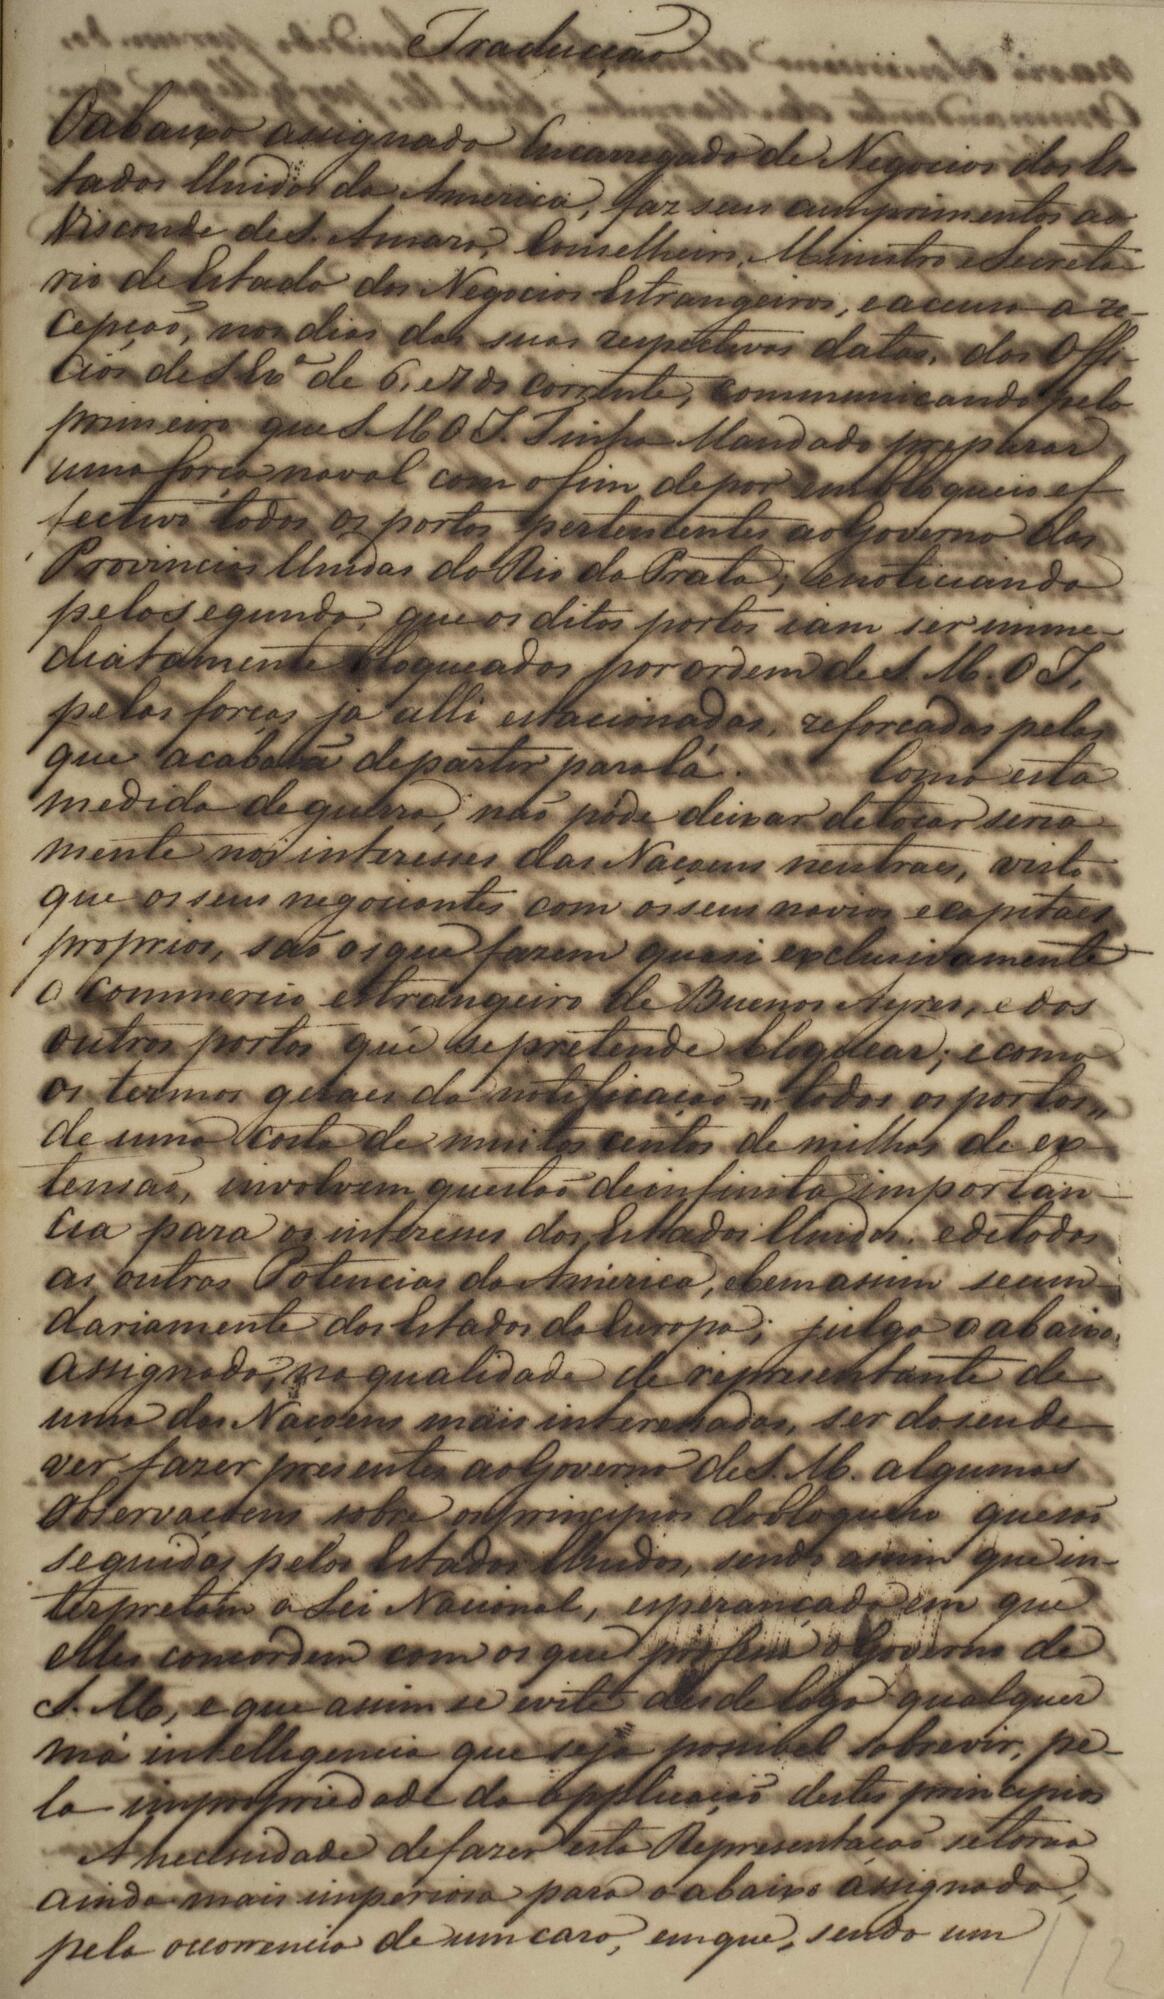 Traducção
O abaixo assignado Encarregado de Negocios dos Es-
tados Unidos da America, faz seus cumprimentos ao
Visconde de S. Amaro, Conselheiro, Ministro e Secreta-
rio de Estado dos Negocios Estrangeiros, e accusa a re-
cepção, nos dias das suas respectivas datas, dos Offi-
cios de S. Exª de 6, e 7 do corrente, communicando pelo
primeiro que S. M. O I. Tinha Mandado preparar
uma força naval com o fim de por em bloqueio ef
fectivo todos os portos pertencentes ao Governo das
Provincias Unidas do Rio da Prata; e noticiando
pelo segundo, que os ditos portos iam ser imme-
diatamente bloqueados por ordem de S. M. O I,
pelas forças ja alli estacionadas, reforçadas pelas
que acabavã de partir para lá. Como esta
medida de guerra, não póde deixar de tocar seria
mente nos interesses das Naçoens neutraes, visto
que os seus negociantes com os seus navios e capitaes
proprios, são os que fazem quasi exclusivamente
o commercio estrangeiro de Buenos Ayres, e dos
outros portos que se pretende bloquear; e como
os termos geraes da notificação = "todos os portos"
de uma costa de muitos centos de milhas de ex-
tensão, involvem questão de infinita importan-
cia para os interesses dos Estados Unidos, e de todas
as outras Potencias da America, e bem assim secun
dariamente dos Estados da Europa; julga o abaixo
assignado, na qualidade de representante de
uma das Naçoens mais interessadas, ser do seu de
ver fazer presentes ao Governo de S. M. algumas
observaçoens sobre os principios do bloqueio que são
seguidos pelos Estados Unidos, sendo assim que in-
terpretam a Lei Nacional, esperançado em que
elles concordem com os que professa o Governo de
S. M., e que assim se evite desde logo qualquer
má intelligencia que seja possivel sobrevir, pe-
la impropriedade da applicação destes principios
A necessidade de fazer esta Representação se torna
ainda mais imperiosa para o abaixo assignado,
pela occorrencia de um caso, em que, sendo um
112